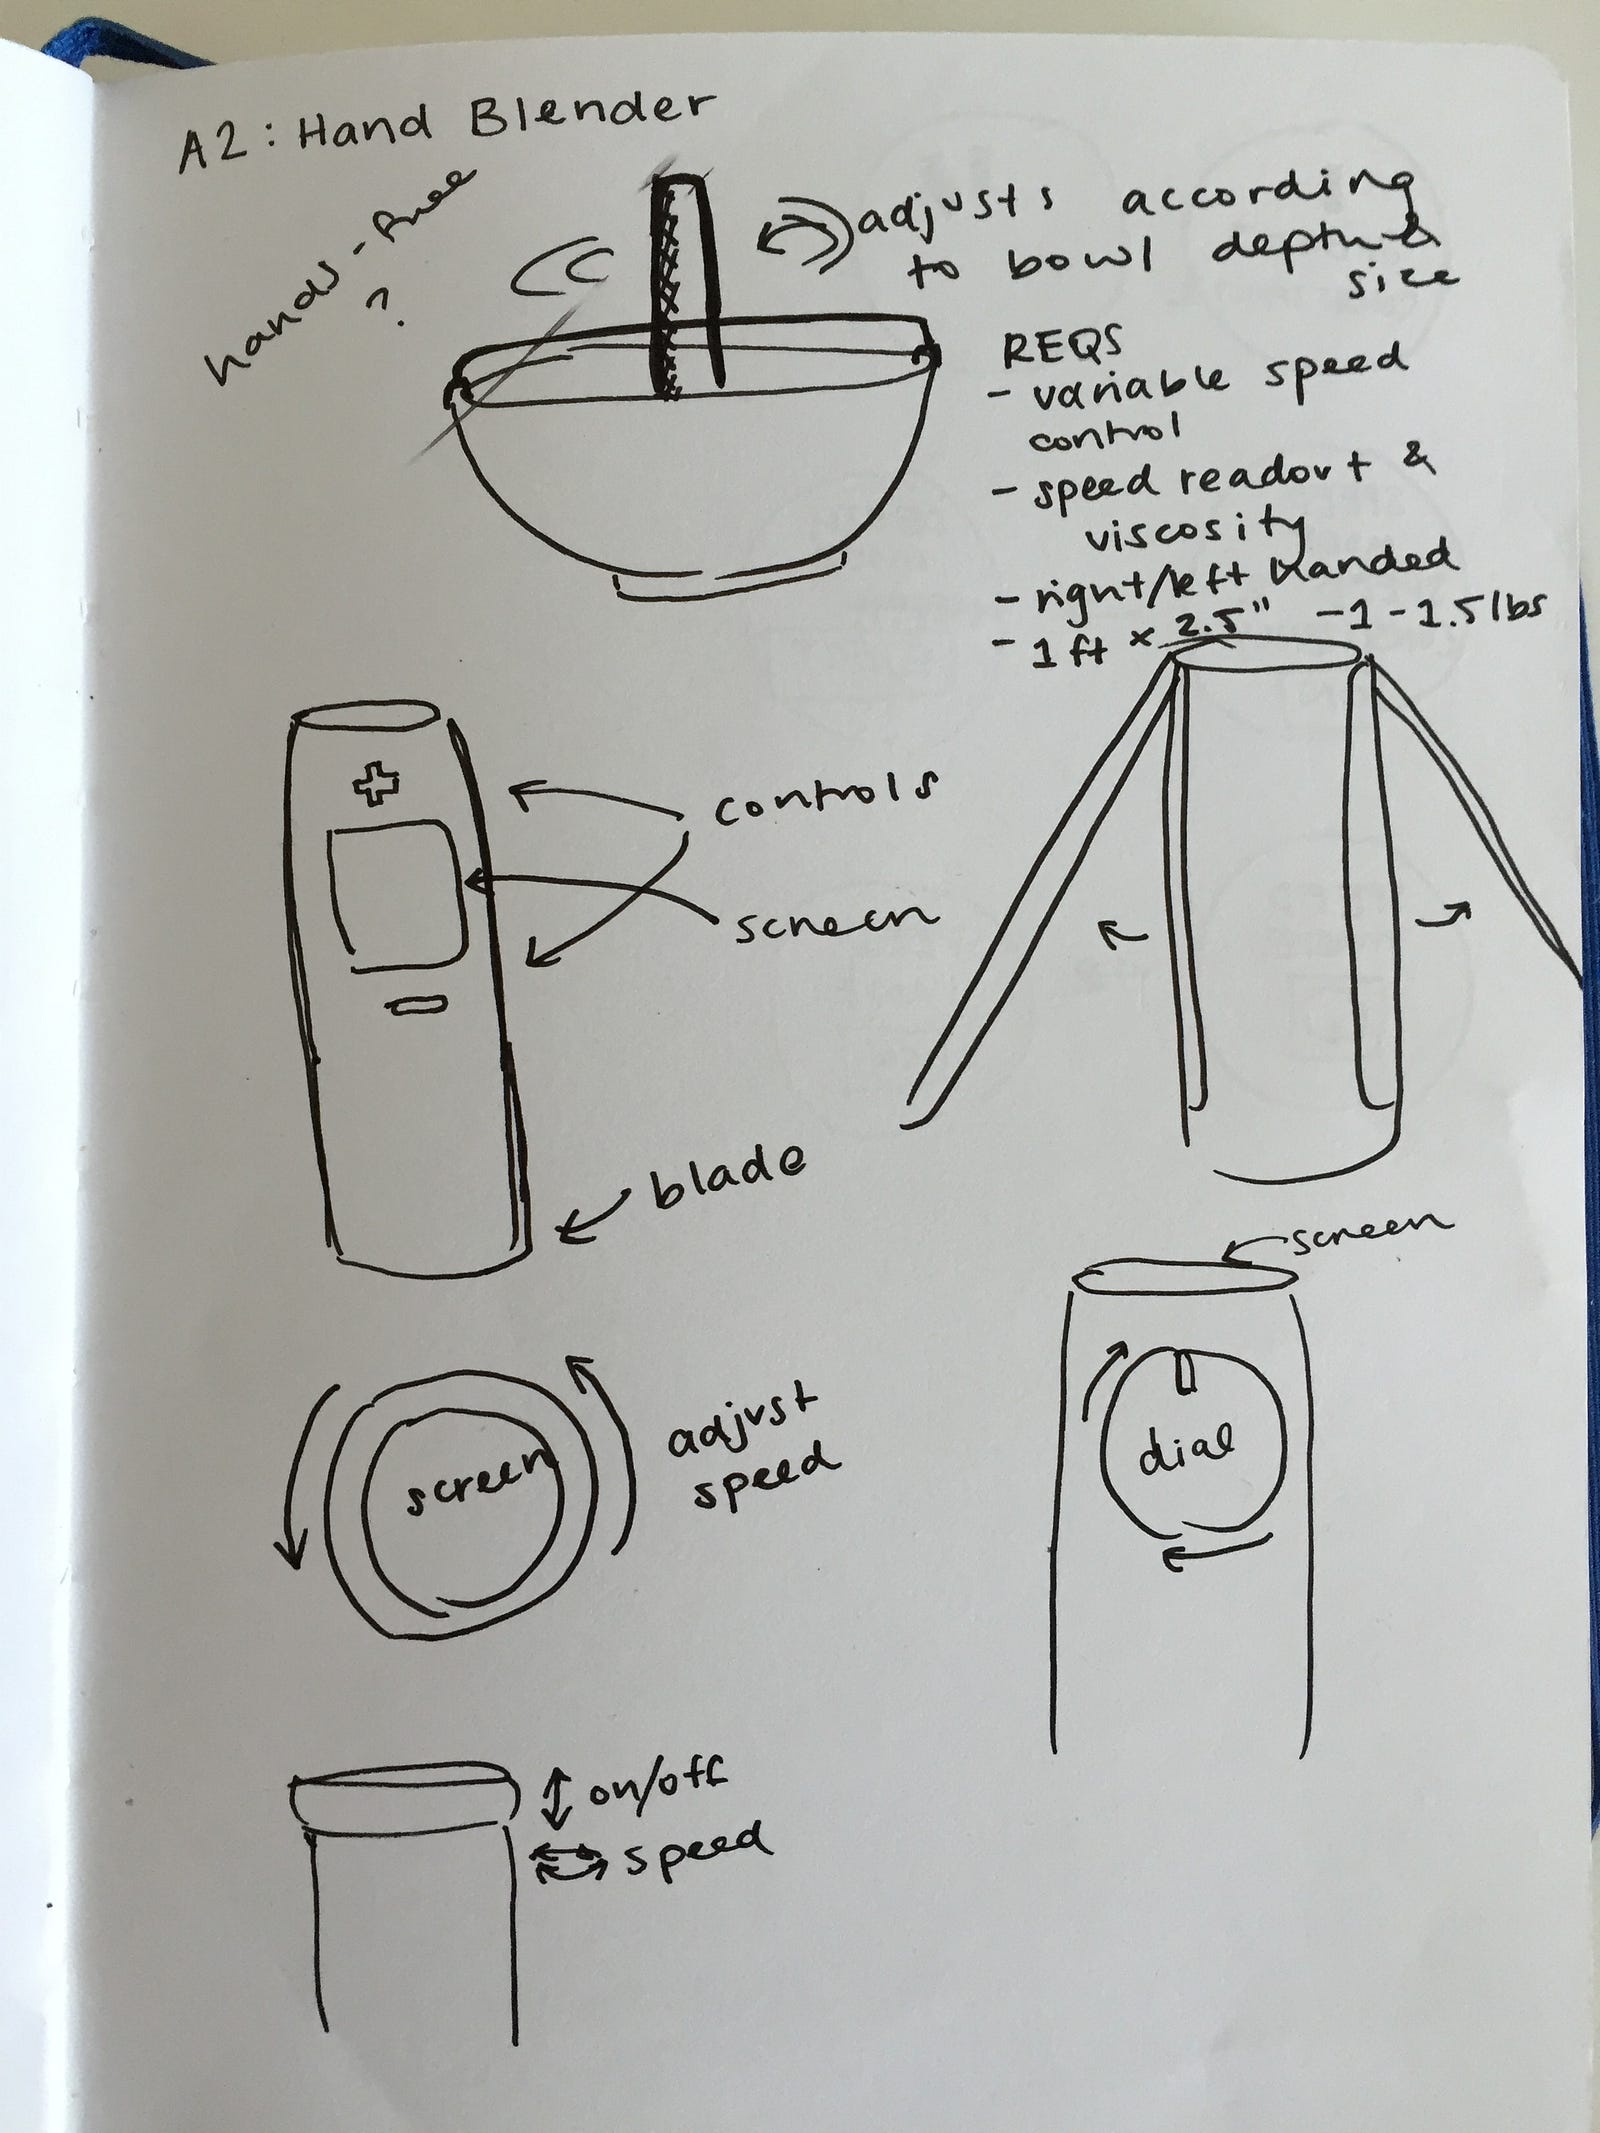 A2: Hand Blender
hands-free
?
adjusts according
to bowl depth &
size
REQS
- variable speed
control
- speed readout &
viscosity
- right/left handed
- 1ft x 2.5" - 1 - 1.5 lbs
controls
screen
blade
screen
screen
adjust
speed
dial
on/off
speed